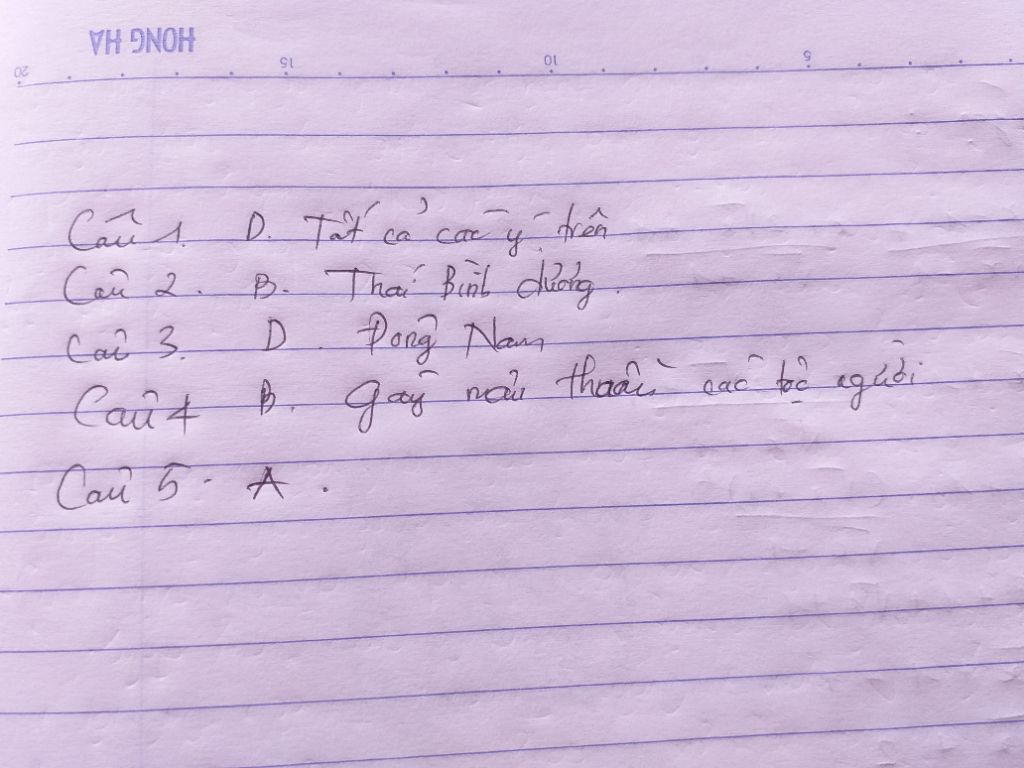 HONG HA
20 15 10 5
Câu 1. D. Tất cả các ý trên
Câu 2. B. Thái Bình dương.
Câu 3. D. Đông Nam
Câu 4 B. Gây mâu thuẫn các bộ người
Câu 5. A.